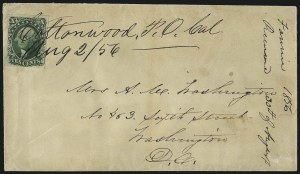 ttonwood, P.O. Cal
ug 2/56
Mrs A. M. Washington
No 463 Sixth Street
Washington
D.C.
1856
TEN CENTS